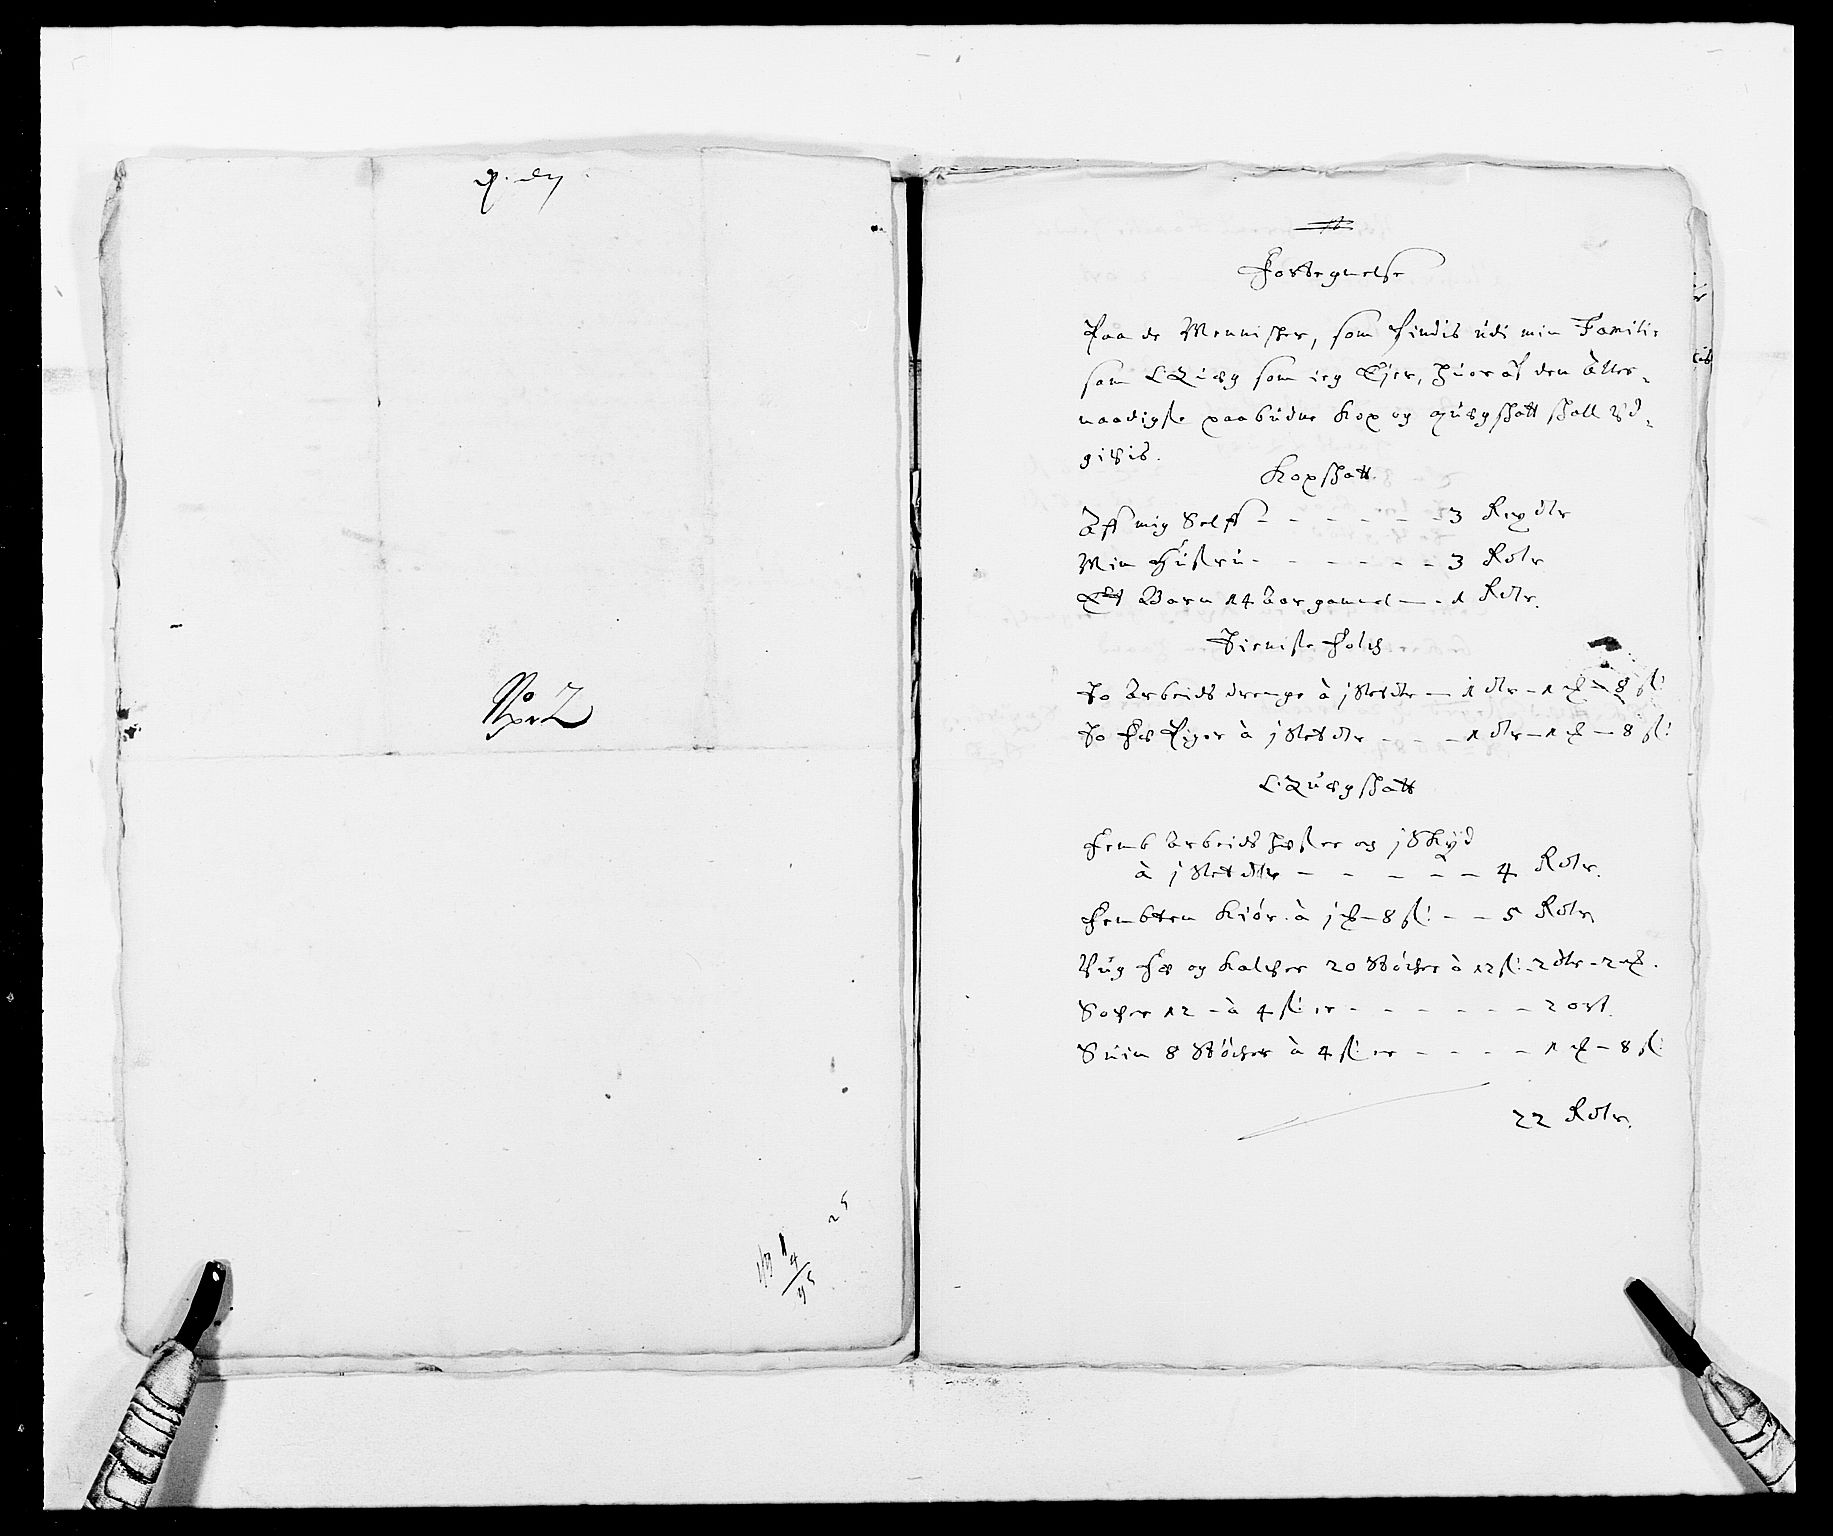 No 2
Fortegnelse
Paa de Mennisker, som findis udi min Familie
som Qvæg som ieg Ejer, huor af den Aller-
naadigste paabudne Kop og quægskatt skall Ud-
gifvis.
Kopskatt.
Aff mig Self - - - - - 3 Rixdlr
Min Hustru - - - - - 3 Rdlr
Et Barn 14 Aar gammel - - 1 Rdlr.
Tieniste Folch
To Arbeids drenge à j Slet dlr - 1 dlr - 1 - 8 sk:
To Fæ Piger à j Slet dlr - - - 1 dlr - 1 - 8 sk:
Qvægskatt
Femb Arbeids hæster og j
à j Slet dlr - - - - - 4 Rdlr.
Fembten Kiør à j - 8 sk: - - 5 Rdlr
Ung Fæ og Kalfver 20 Støcher à 12 sk: - 2 dlr - 2
Sofer 12 - à 4 sk: er - - - - - - 2 ort.
Suin 8 Støcher à 4 sk: er - - - - 1 - 8 sk:
22 Rdlr.